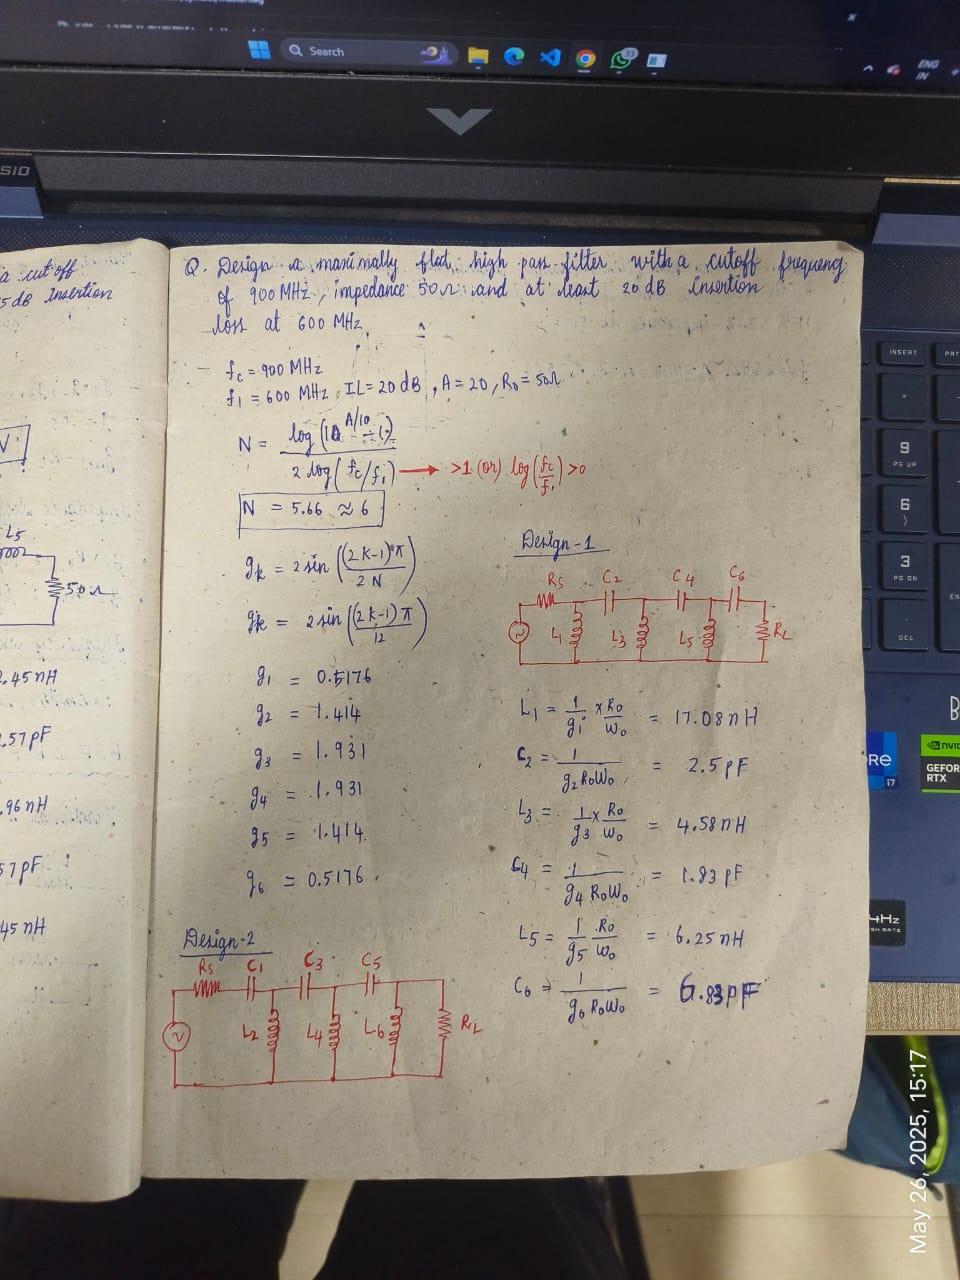 Search
33
ENG
IN
SIO
INSERT
9
PG UP
6
3
PG DN
DEL
a cut off
5 dB Insertion
L5
50Ω
.45 nH
.57 pF
.96 nH
57 pF
45 nH
Q. Design a maximally flat, high pass filter with a cutoff frequency
of 900 MHz, impedance 50Ω and at least 20 dB insertion
loss at 600 MHz.
fc = 900 MHz
f1 = 600 MHz, IL = 20 dB, A = 20, R0 = 50Ω
N = log(10^A/10 - 1) / 2 log(fc/f1) → >1 (or) log(fc/f1) >0
N = 5.66 ≈ 6
gk = 2 sin((2K-1)π / 2N)
gk = 2 sin((2K-1)π / 12)
g1 = 0.5176
g2 = 1.414
g3 = 1.931
g4 = 1.931
g5 = 1.414
g6 = 0.5176
Design-1
Rs C2 C4 C6
L1 L3 L5 RL
L1 = 1/g1 × R0/W0 = 17.08 nH
C2 = 1/g2 R0W0 = 2.5 pF
L3 = 1/g3 × R0/W0 = 4.58 nH
C4 = 1/g4 R0W0 = 1.83 pF
L5 = 1/g5 R0/W0 = 6.25 nH
C6 = 1/g6 R0W0 = 6.83 pF
Design-2
Rs C1 C3 C5
L2 L4 L6 RL
RE
i7
NVID
GEFOR
RTX
4Hz
May 26, 2025, 15:17